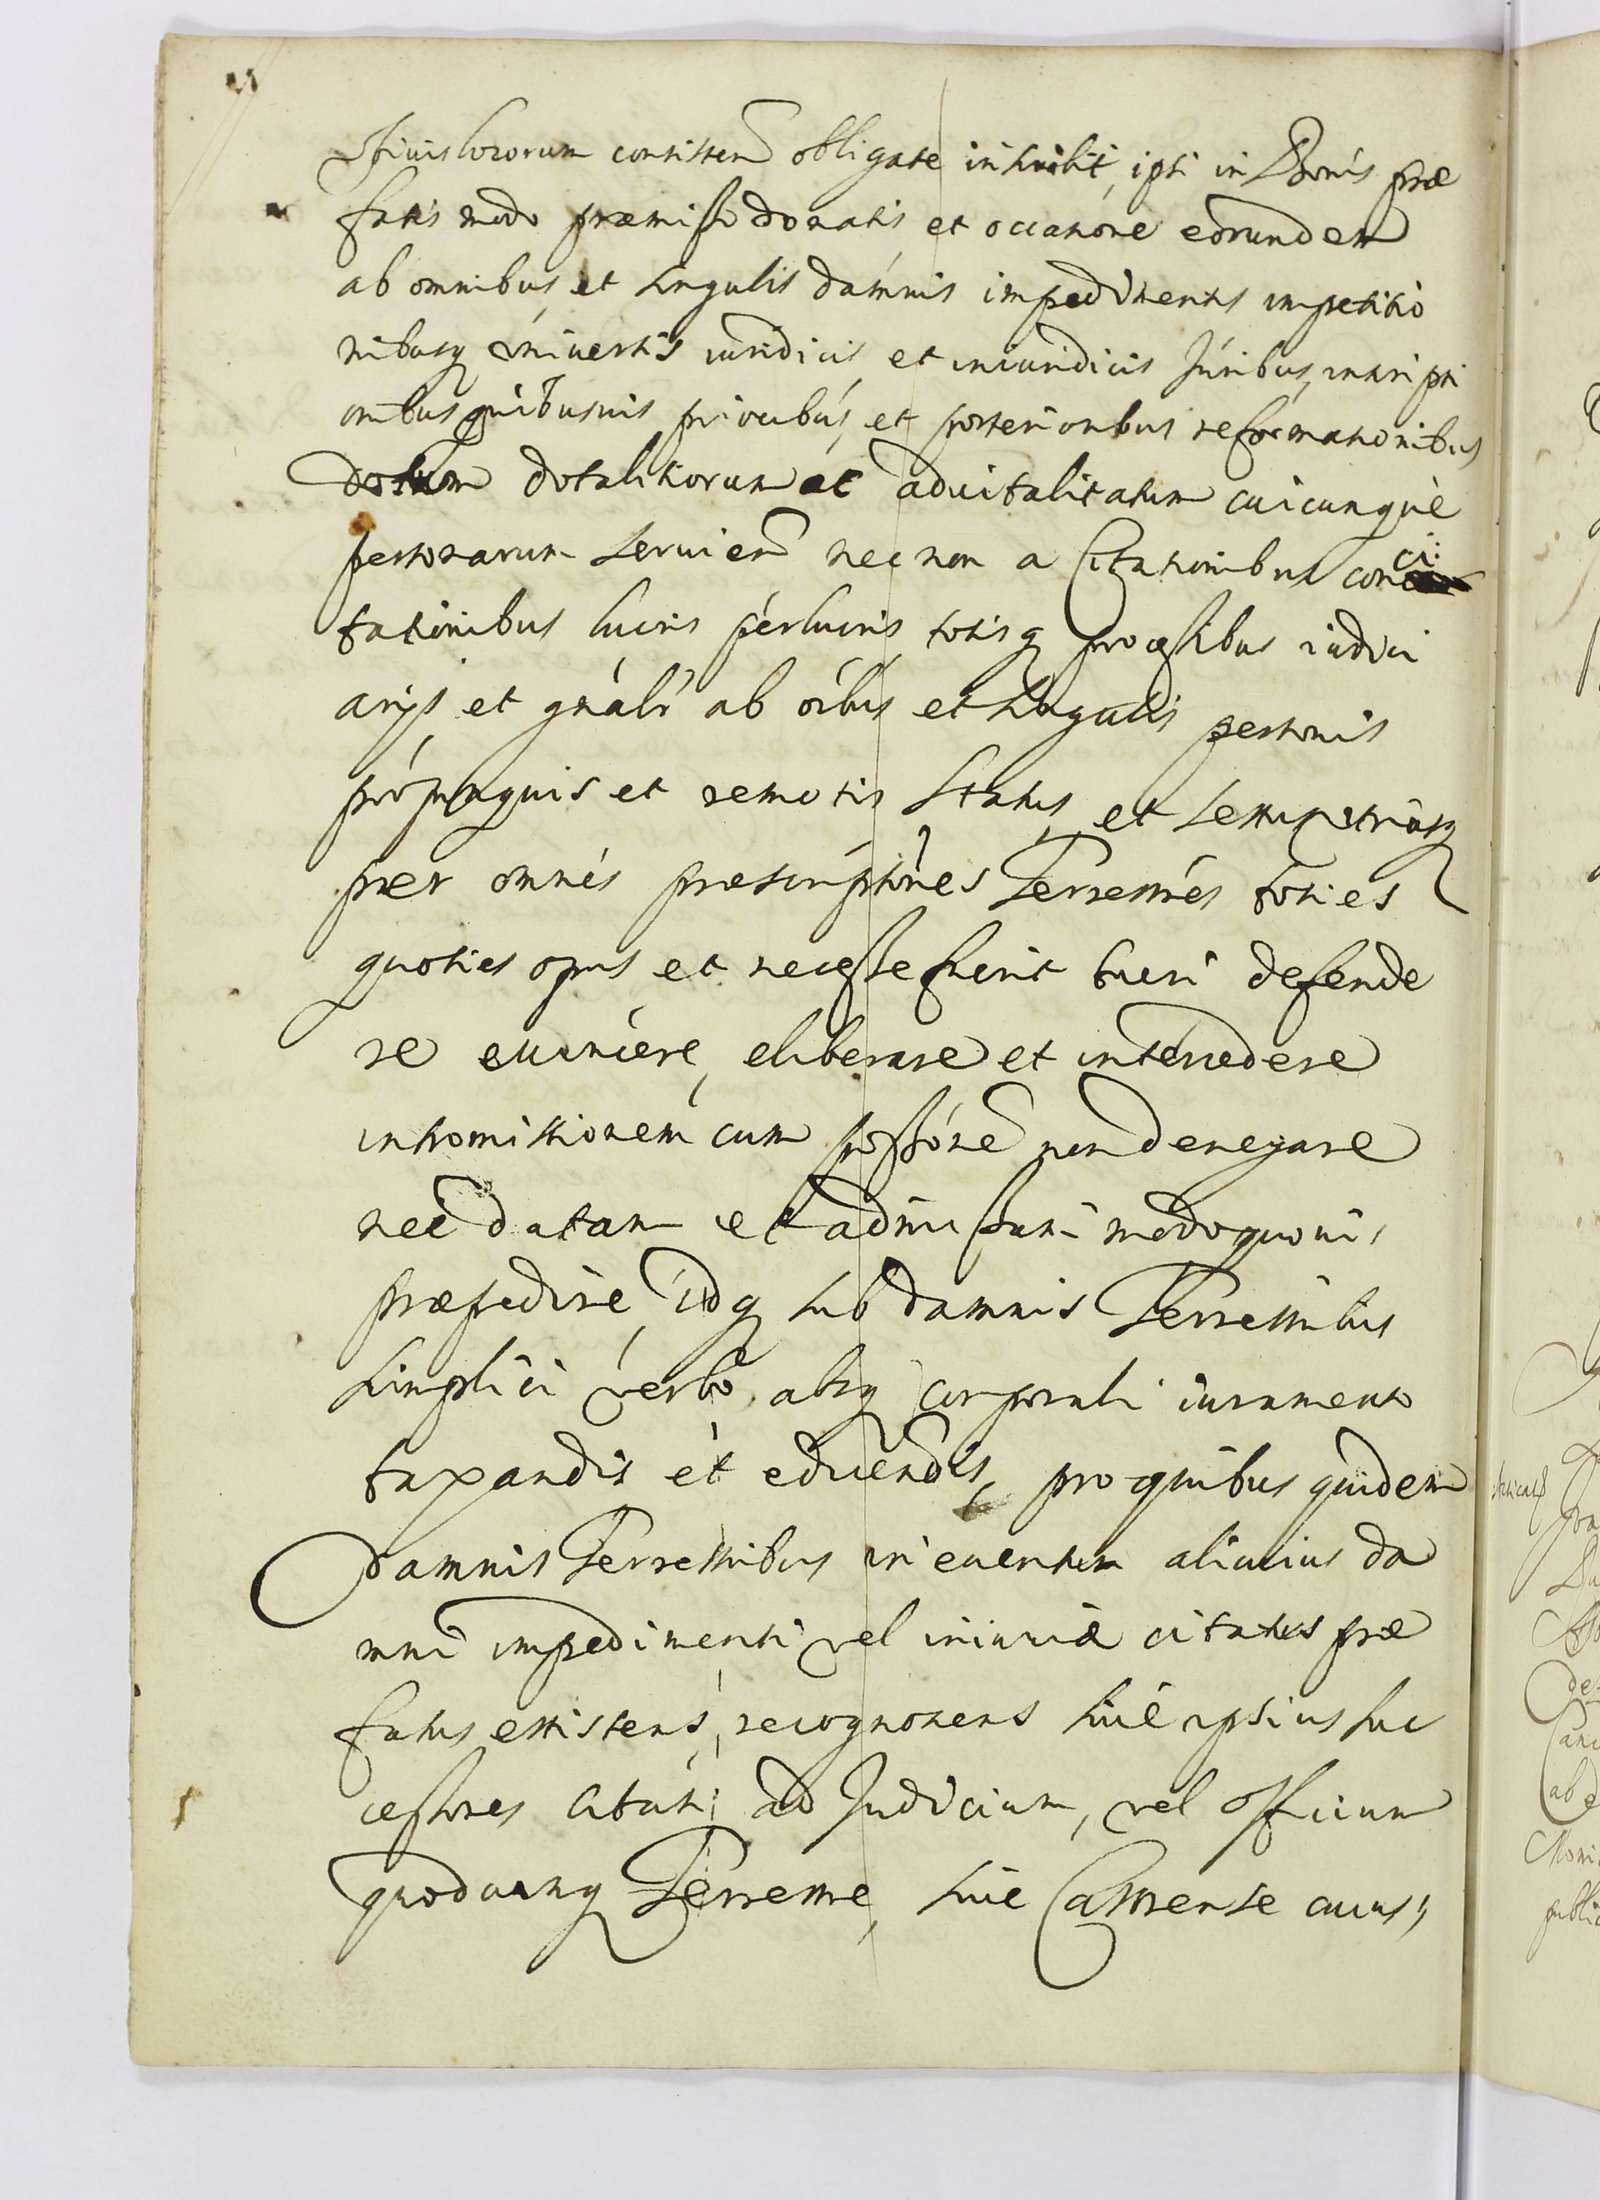 consisten obligate inscribit, ipsi in Bonis præ
fatis modo præmisso donatis et occasione eorundem
ab omnibus et singulis damnis impedimentis impetitio
nibusq universis iuridicis et iniuridicis Juribus, inscripti
onibus quibusuis prioribus et posterioribus reformationibus
dotum dotalitiorum ac aduitalitatum cuicunque
personarum seruien nec non a Citationibus conci:
tationibus lucris perlucris totisq processibus iudici
arijs et gnalr ab oibus et singulis personis
propinquis et remotis status et sexus utriusq
per omnes præscriptiones Terrestres toties
quoties opus et necesse fuerit tueri defende
re euincere, eliberare et intercedere
intromissionem cum possone non denegare
nec datam et admissam modoquouis
præpedire, idq sub damnis Terrestribus
simplici verbo absq corporali iuramento
taxandis et educendis, pro quibus quidem
damnis Terrestribus in euentum alicuius da
mni impedimenti vel iniuriæ citatus præ
fatus existens, recognoscens siue ipsius suc
cessores citati ad Judicium, vel officium
quodcunq Terrestre, siue Castrense cuius